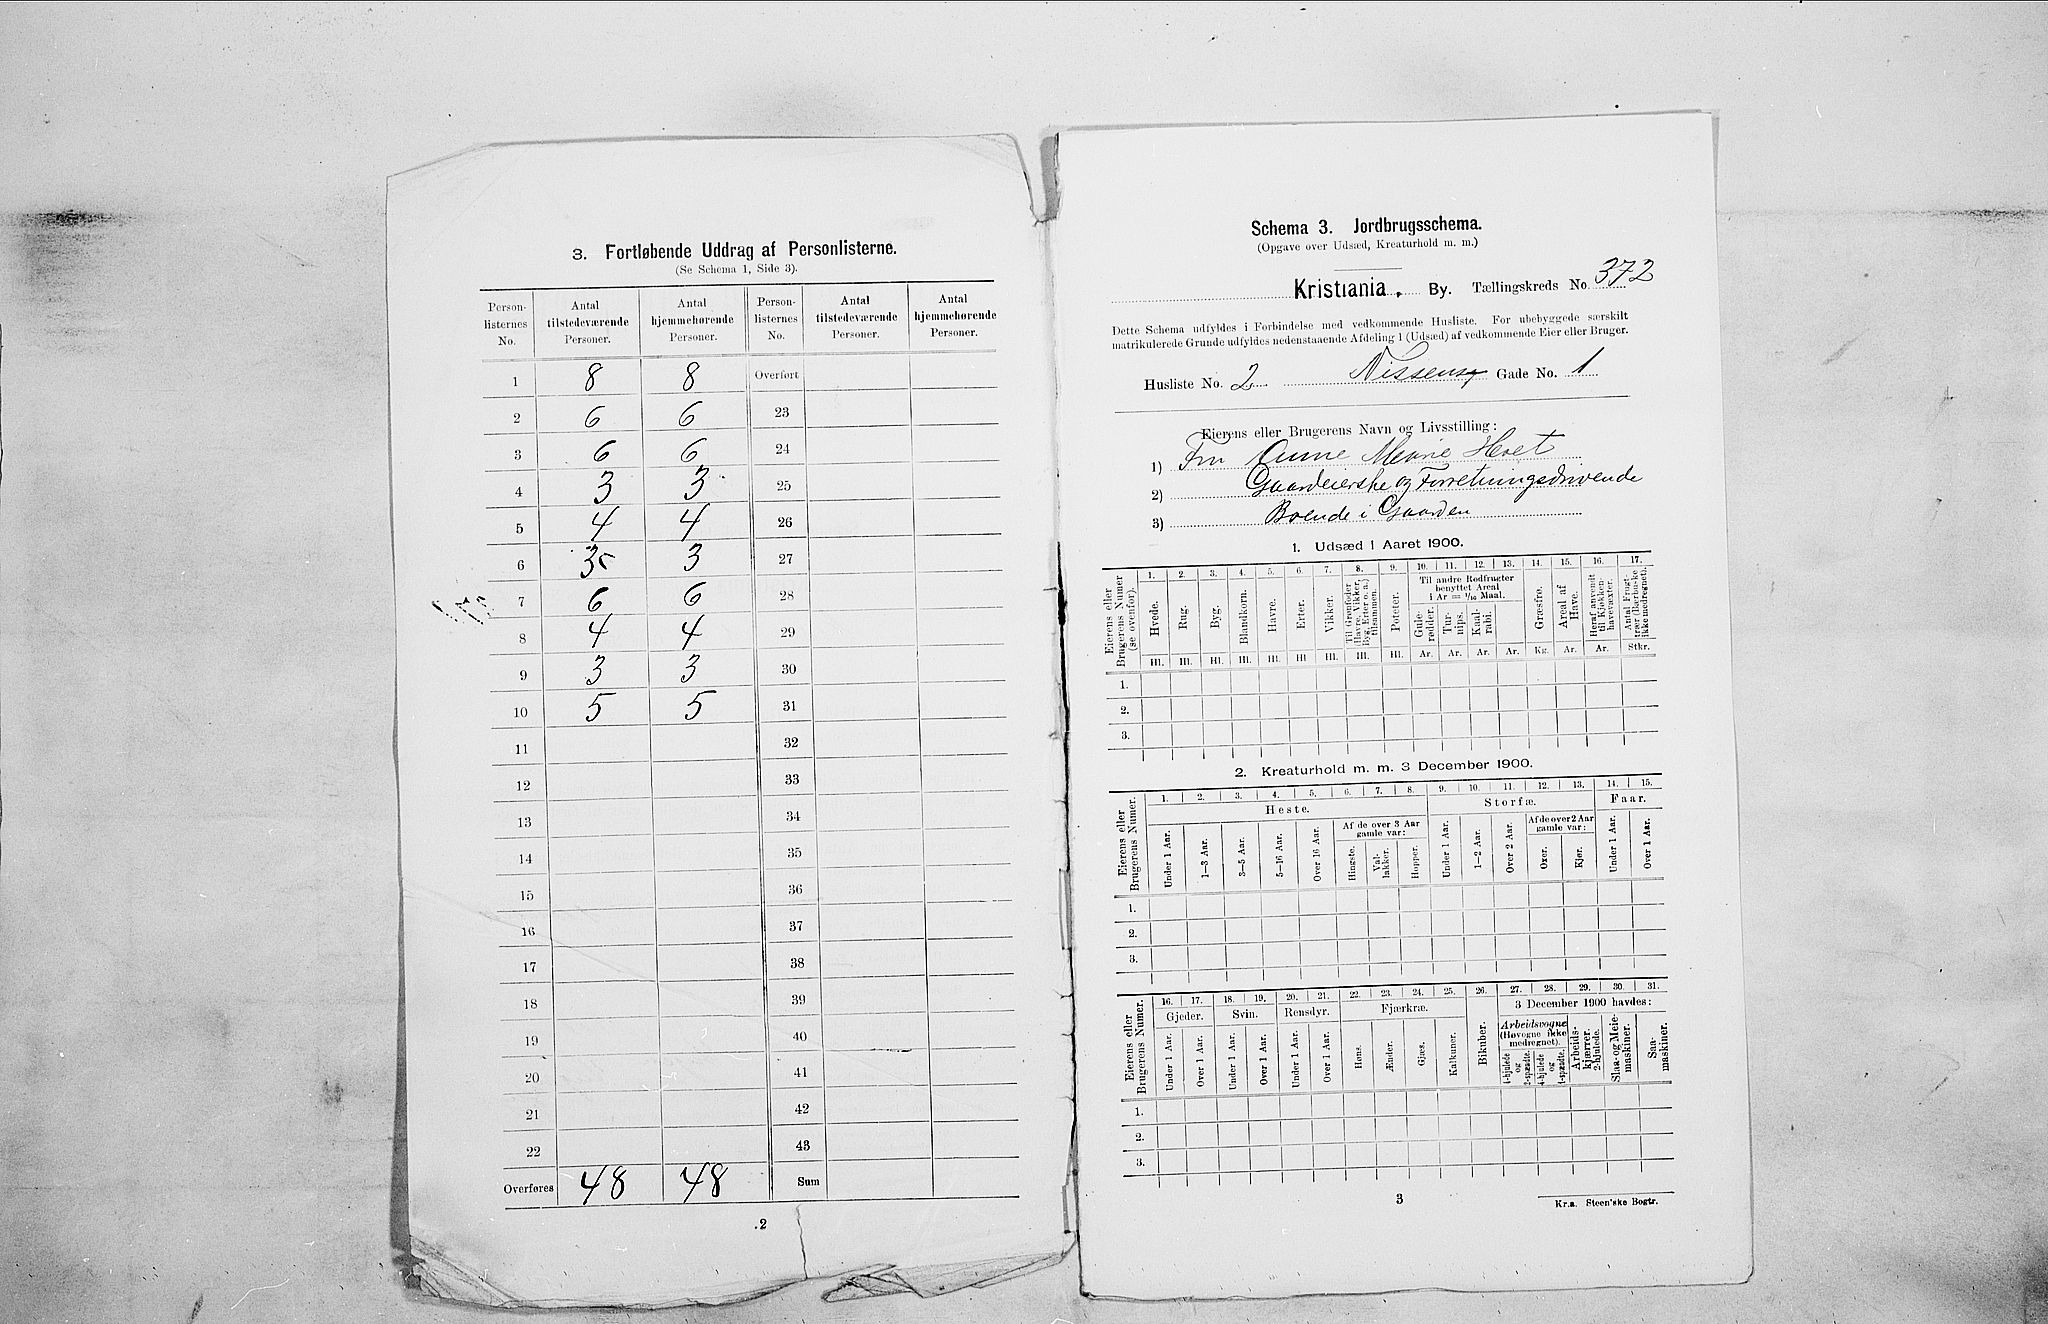 3. Fortløbende Uddrag af Personlisterne.
(Se Schema 1, Side 3).
Person-listernes No. | Antal tilstedeværende Personer. | Antal hjemmehørende Personer. | Person-listernes No. | Antal tilstedeværende Personer. | Antal hjemmehørende Personer.
1 8 8 Overført
2 6 6 23
3 6 6 24
4 3 3 25
5 4 4 26
6 3 3 27
7 6 6 28
8 4 4 29
9 3 3 30
10 5 5 31
11 32
12 33
13 34
14 35
15 36
16 37
17 38
18 39
19 40
20 41
21 42
22 43
Overføres 48 48 Sum
2
Schema 3. Jordbrugsschema.
(Opgave over Udsæd, Kreaturhold m. m.)
Kristiania. By. Tællingskreds No. 372
Dette Schema udfyldes i Forbindelse med vedkommende Husliste. For ubebyggede særskilt
matrikulerede Grunde udfyldes nedenstaaende Afdeling 1 (Udsæd) af vedkommende Eier eller Bruger.
Husliste No. 2 Nissensg Gade No. 1
Eierens eller Brugerens Navn og Livsstilling:
1) Fru Anne Marie
2) Gaardeierske og Forretningsdrivende
3) Boende i Gaarden
1. Udsæd i Aaret 1900.
Eierens eller Brugerens Numer (se ovenfor).
1. 2. 3. 4. 5. 6. 7. 8. 9. 10. 11. 12. 13. 14. 15. 16. 17.
Hvede. Rug. Byg. Blandkorn. Havre. Erter. Vikker. Til Grønfoder (Havre, Vikker, Byg, Erter o. a.) tilsammen. Poteter.
Til andre Rodfrugter benyttet Areal i Ar = 1/10 Maal.
Gule-rødder. Tur-nips. Kaal-rabi. Græsfrø. Areal af Have. Heraf anvendt til Kjøkken-havevæxter. Antal Frugt-trær (Bærbuske ikke medregnet).
Hl. Hl. Hl. Hl. Hl. Hl. Hl. Hl. Hl. Ar. Ar. Ar. Ar. Kg. Ar. Ar. Stkr.
1.
2.
3.
2. Kreaturhold m. m. 3 December 1900.
Eierens eller Brugerens Numer.
1. 2. 3. 4. 5. 6. 7. 8. 9. 10. 11. 12. 13. 14. 15.
Heste. Storfæ. Faar.
Af de over 3 Aar gamle var: Af de over 2 Aar gamle var:
Under 1 Aar. 1—3 Aar. 3—5 Aar. 5—16 Aar. Over 16 Aar. Hingste. Val-lakker. Hopper. Under 1 Aar. 1—2 Aar. Over 2 Aar. Oxer. Kjør. Under 1 Aar. Over 1 Aar.
1.
2.
3.
Eierens eller Brugerens Numer.
16. 17. 18. 19. 20. 21. 22. 23. 24. 25. 26. 27. 28. 29. 30. 31.
Gjeder. Svin. Rensdyr. Fjærkræ. 3 December 1900 havdes:
Under 1 Aar. Over 1 Aar. Under 1 Aar. Over 1 Aar. Under 1 Aar. Over 1 Aar. Høns. Ænder. Gjæs. Kalkuner. Bikuber.
Arbeidsvogne (Høvogne ikke medregnet).
4-hjulede og 2-spændte. 4-hjulede og 1-spændte. Arbeids-kjærrer, 2-hjulede. Slaa- og Meie-maskiner. Saa-maskiner.
1.
2.
3.
3
Kr.a. Steen'ske Bogtr.